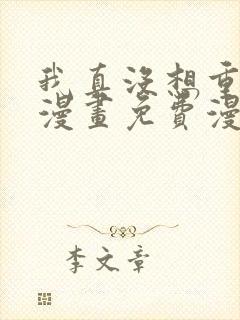 我真没想重
漫畫免費漫
李文章